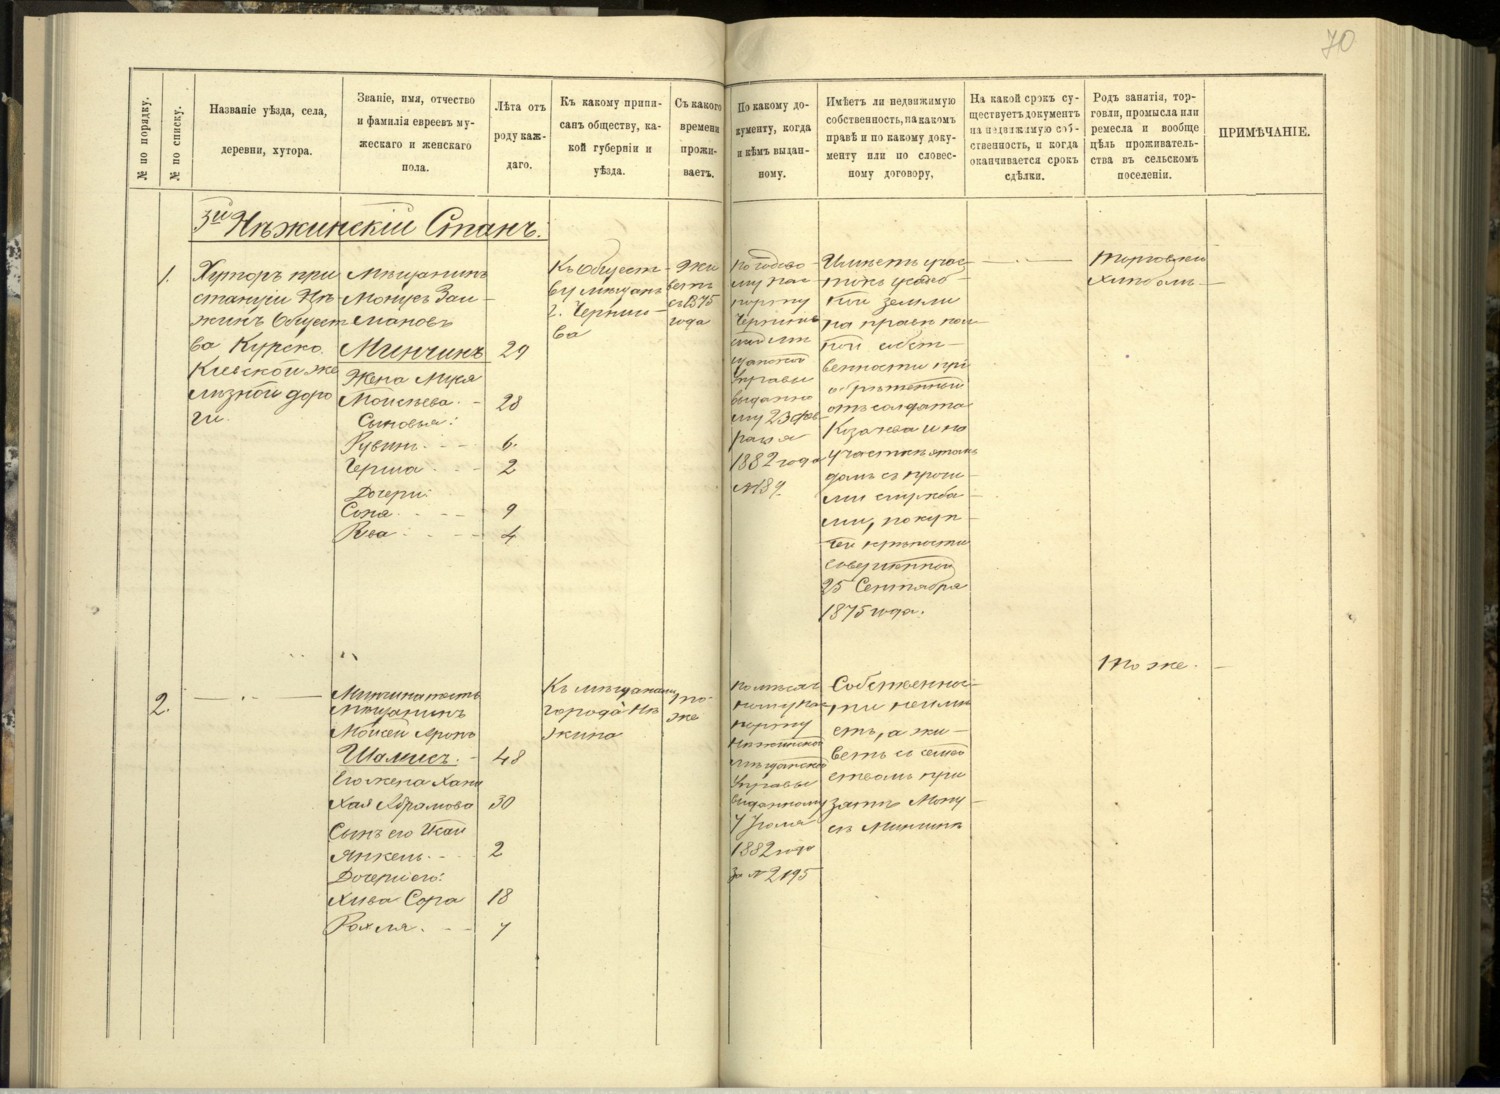 70
№ по порядку.
№ по списку.
Названіе уѣзда, села,
деревни, хутора.
Званіе, имя, отчество
и фамилія евреевъ му-
жескаго и женскаго
пола.
Лѣта отъ
роду каж-
даго.
Къ какому припи-
санъ обществу, ка-
кой губерніи и
уѣзда.
Съ какого
времени
прожи-
ваетъ.
По какому до-
кументу, когда
и кѣмъ выдан-
ному.
Имѣетъ ли недвижимую
собственность, на какомъ
правѣ и по какому доку-
менту или по словес-
ному договору,
На какой срокъ су-
ществуетъ документъ
на недвижимую соб-
ственность, и когда
оканчивается срокъ
сдѣлки.
Родъ занятія, тор-
говли, промысла или
ремесла и вообще
цѣль проживатель-
ства въ сельскомъ
поселеніи.
ПРИМѢЧАНІЕ.
3й Нѣжинскій Станъ.
1.
Хуторъ при
станціи Нѣ-
жинъ Общест
ва Курско
Кіевской же
лезной доро
ги.
Мѣщанинъ
Монусъ
Минчинъ 29
Жена Муся
Моисѣева 28
Сыновья:
Рувинъ 6.
Герша 2
Дочери:
Соня 9
Рва 4
Къ Общест-
ву мѣщанъ
г. Черниго-
ва
Жи
ветъ
съ 1875
года
По годово-
му пас
порту
Чернигов
ской мѣ
щанской
Управы
выданно
му 23 Фев
раля
1882 года
№ 89.
Имѣетъ учас
токъ усадеб
ной земли
на правѣ пол
ной собст-
венности прі
обрѣтенной
отъ солдата
Козачка и на
участкѣ этомъ
домъ съ прочи-
ми служба-
ми, по куп-
чей крѣпости
совершенной
25 Сентября
1875 года.
Торговли
хлѣбомъ
2.
Мѣщанинъ
Моисей Аронъ
Шамисъ 48
Его жена Хана
Хая Абрамова 30
Сынъ его
Янкель 2
Дочери его:
Хива Сора 18
Рохля 7
Къ мѣщанамъ
города Нѣ
жина
то-
же
по мѣсяч
ному пас
порту
Нѣжинской
мѣщанской
Управы
выданному
7 Іюля
1882 года
за № 2195
Собственнос-
ти неимѣ
етъ, а жи-
ветъ съ семей
ствомъ при
зятѣ Мону
сѣ Минчинѣ
То же.